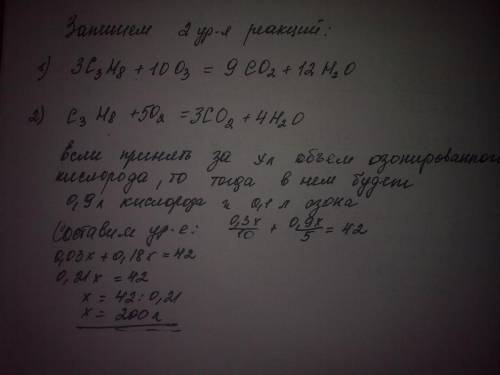 Запишем 2 ур-я реакций:
1) 3C3H8 + 10O3 = 9CO2 + 12H2O
2) C3H8 + 5O2 = 3CO2 + 4H2O
Если принять за x л объем озонированного
кислорода, то тогда в нем будет
0,9л кислорода и 0,1 л озона
Составим ур-е: 0,3x/10 + 0,9x/5 = 42
0,03x + 0,18x = 42
0,21x = 42
x = 42 : 0,21
x = 200 л